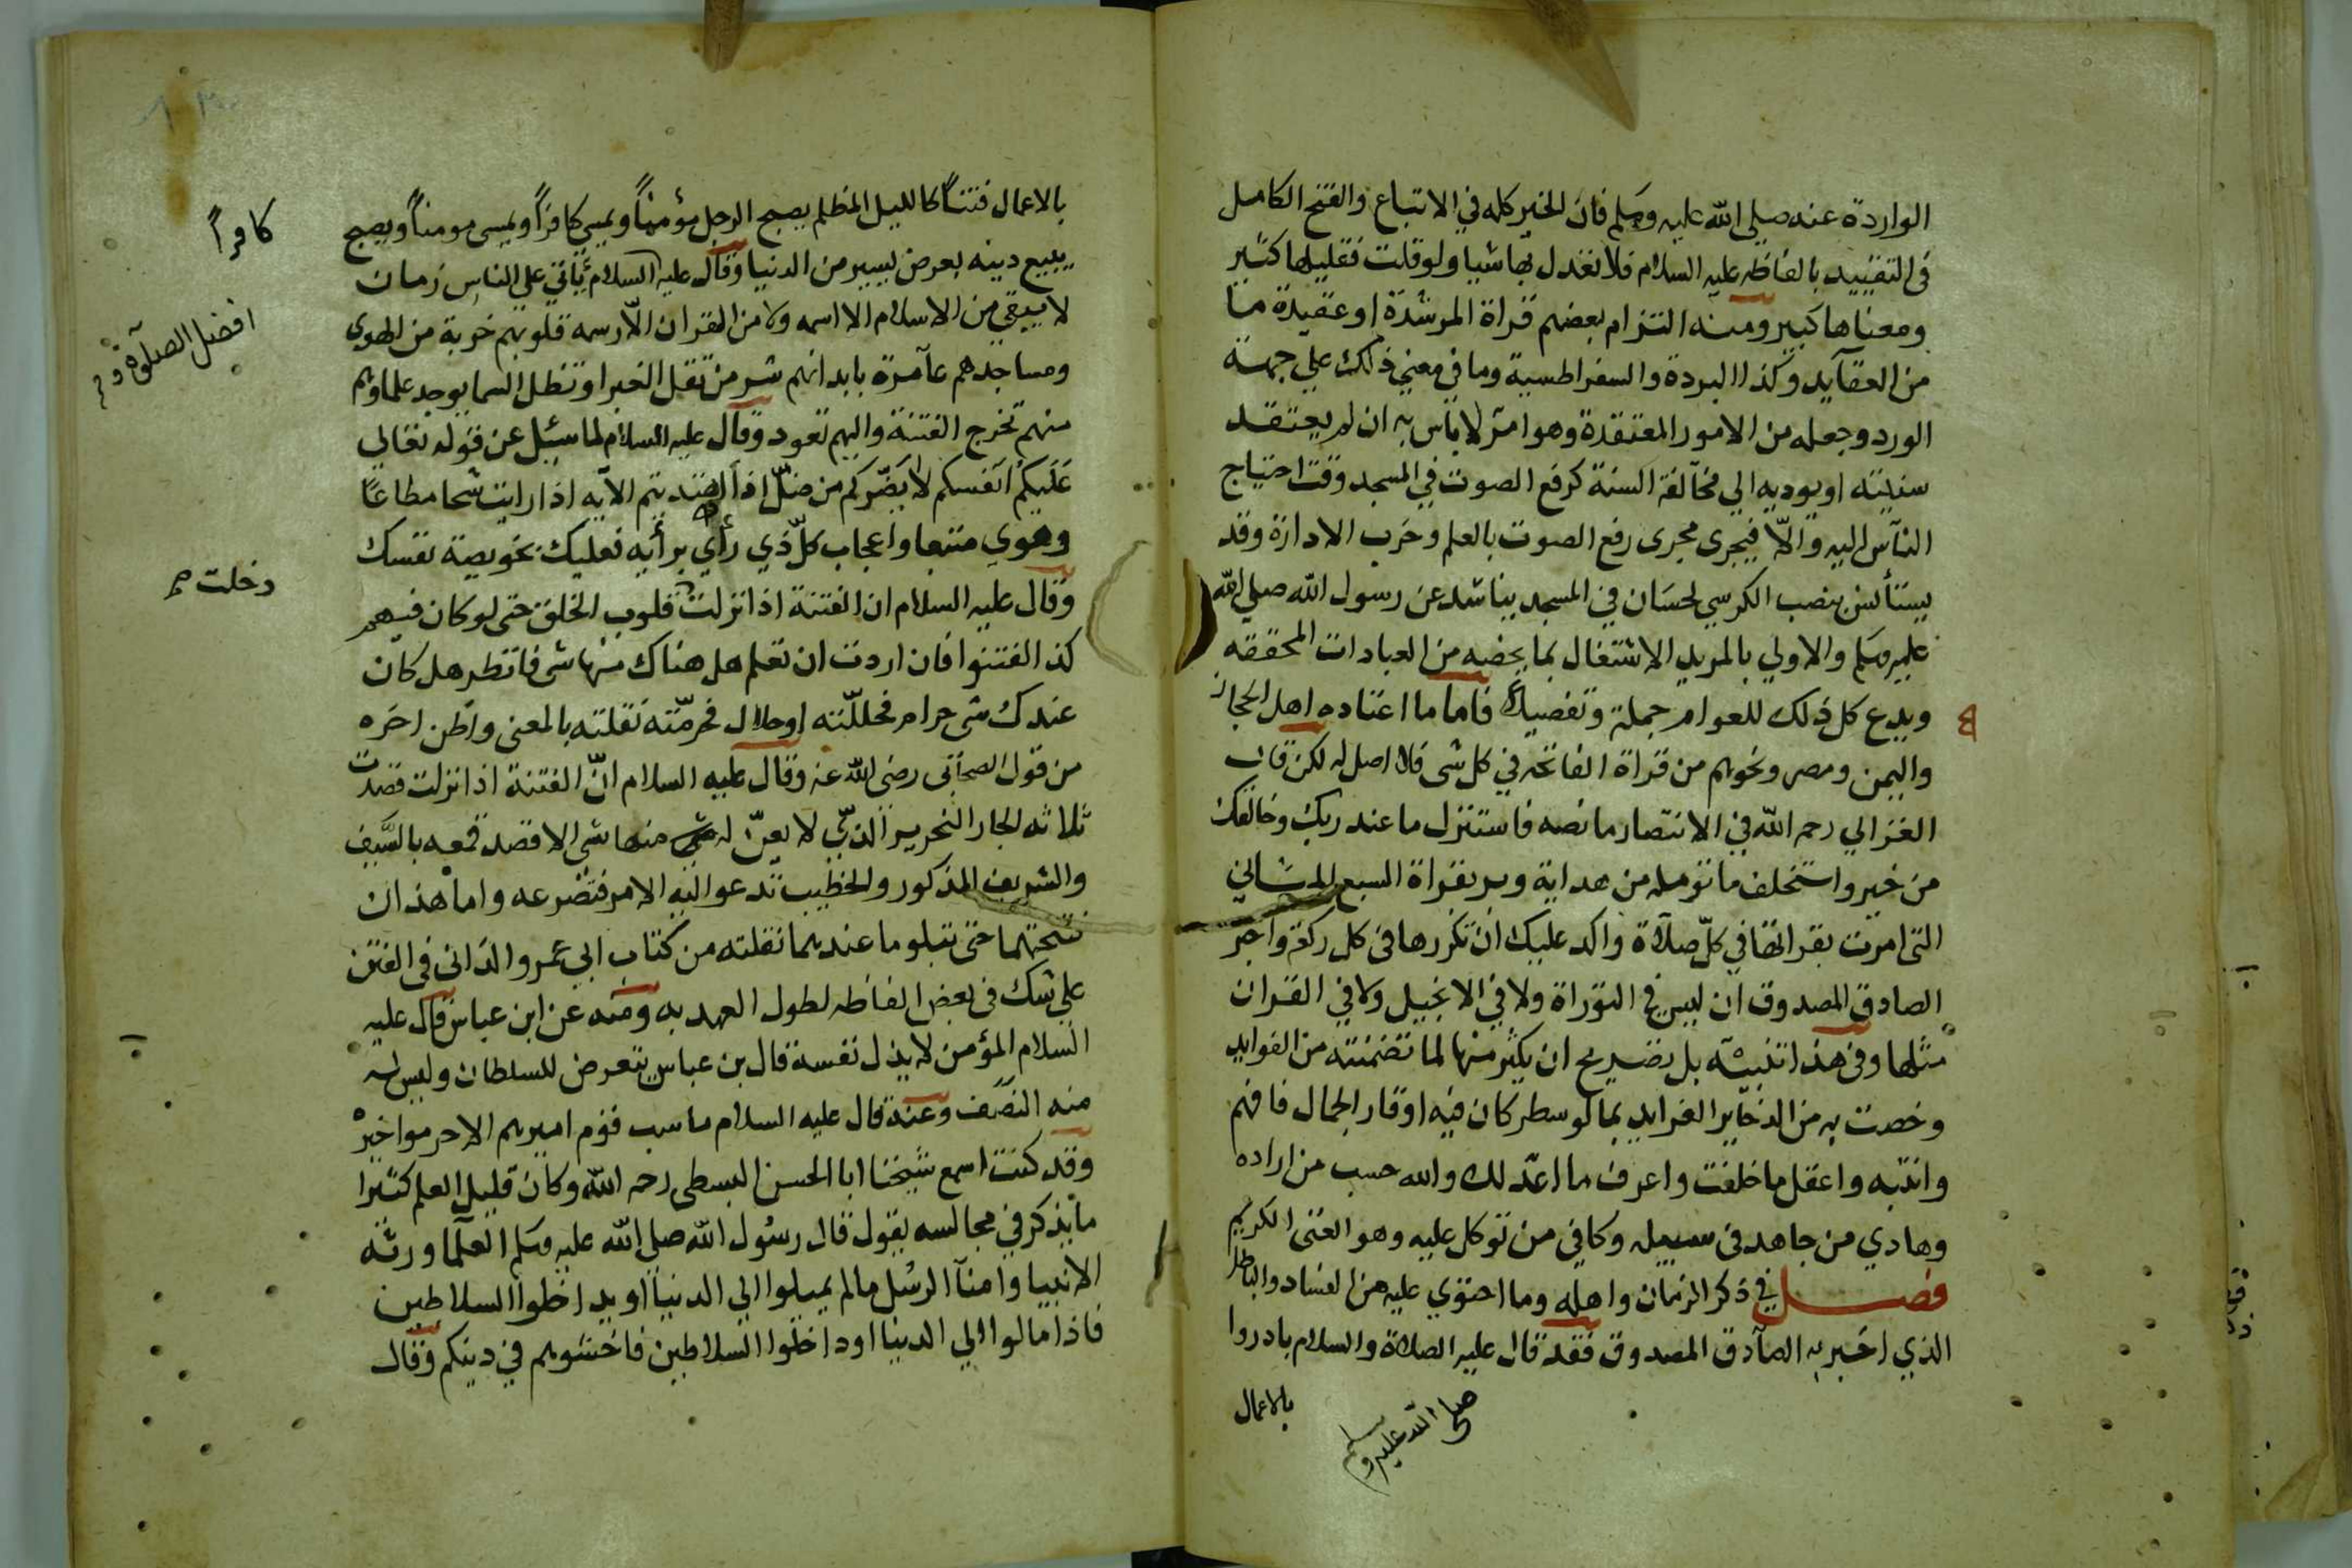 الواردة عنه صلى الله عليه وسلم فان الخير كله في الاتباع والفتح الكامل
في التقييد بالفاظه عليه السلام فلا تعدل بها شيا ولو قلت فقليلها كثير
ومعناها كبير ومنه التزام بعضهم قراة المرشدة او عقيدة ما
من العقآيد وكذا البردة والسقراطسية وما في معني ذلك علي جهة
الورد وجعله من الامور المعتقدة وهو امر لا باس به ان لم يعتقد
سنيته او يوديه الي مخالفة السنة كرفع الصوت في المسجد وقت احتياج
النآس اليه والّا فيجرى مجرى رفع الصوت بالعلم وحزب الادارة وقد
يستأنس بنصب الكرسي لحسان في المسجد يناشد عن رسول الله صلي الله
عليه وسلم والاولي بالمريد الاشتغال بما يخصه من العبادات المحققه
ويدع كل ذلك للعوام جملة وتفصيلا فاما ما اعتاده اهل الحجاز
واليمن ومصر ونحوهم من قراة الفاتحه في كل شى فلا اصل له لكن قال
الغزالي رحمه الله في الانتصار ما نصه فاستنزل ما عند ربك وخالقك
من خير واستخلف ما تومله من هداية وبر بقراة السبع المثاني
التى امرت بقرااتها في كلّ صلاة واكد عليك ان تكررها فى كل ركعة واخبر
الصادق المصدوق ان ليس في التوراة ولا في الانجيل ولا في القران
مثلها وفى هذا تنبيه بل تصريح ان يكثر منها لما تضمنته من الفوايد
وخصت به من الذخاير الفرايد بما لو سطر كان فيه اوقار الجمال فافهم
وانتبه واعقل ما خلقت واعرف ما اعد لك والله حسب من اراده
وهادي من جاهد فى سبيله وكافي من توكل عليه وهو الغنى الكريم
فصل في ذكر الزمان واهله وما احتوي عليه من الفساد والباطل
الذي اخبر به الصآدق المصدوق فقد قال عليه الصلاة والسلام بادروا
صلى الله عليه وسلم
بالاعمال
بالاعمال فتنًا كالليل المظلم يصبح الرجل مؤمنًا ويمسي كافرًا ويمسى مومنًا ويصبح
كافرًا
يبيع دينه بعرض يسير من الدنيا وقال عليه السلام يأتي على الناس زمان
لا يبقي من الاسلام الا اسمه ولا من القران الّا رسمه قلوبهم خربة من الهوي
افضل الصلاة و
ومساجدهم عآمرة بابدانهم شر من تقل الغبرا وتظل السما يوجد علماوهم
منهم تخرج الفتنة واليهم تعود وقال عليه السلام لما سئيل عن قوله تعالي
عَلَيكُم اَنفسكم لَا يَضّركم من ضلّ اذا اهتديتم الآيه اذا رايت شحا مطاعًا
وهوي متبعا واعجاب كلّ ذي رأي برأيه فعليك بخويصة نفسك
دخلت
وقال عليه السلام ان الفتنة اذا نزلت قلوب الخلق حتى لو كان فيهم
كذا لفتنوا فان اردت ان تعلم هل هناك منها شى فانظر هل كان
عندك شى حرام فحللّته اوحلال فحرمّته نقلته بالمعنى واظن اخره
من قول الصحآبى رضى الله عنه وقال عليه السلام انّ الفتنة اذا نزلت قصدت
ثلاثه الجار النحرير الذي لا يعنّ له منها شى الا قصد قمعه بالسَّيف
والشريف المذكور والخطيب تدعوا اليه الامر فتضرعه واما هذان
فتحتهما حتى تبلو ما عندهما نقلته من كتاب ابي عمرو الدانى فى الفتن
على شك فى بعض الفاظه لطول العهد به ومنه عن ابن عباس قال عليه
السلام المؤمن لا يذل نفسه قال بن عباس يتعرض للسلطان وليس له
منه النصَف وعنه قال عليه السلام ما سب قوم اميرهم الا حرموا خيره
وقد كنت اسمع شيخنا ابا الحسن البسطى رحمه الله وكان قليل العلم كثيرا
ما يذكر في مجالسه يقول قال رسُول الله صلى الله عليه وسلم العلما ورثه
الانبيا وامنآ الرسُل مالم يميلوا الي الدنيآ او يداخلوا السلاطين
فاذا مالوا الي الدينا او داخلوا السلاطين فاخشوهم في دينكم وقال